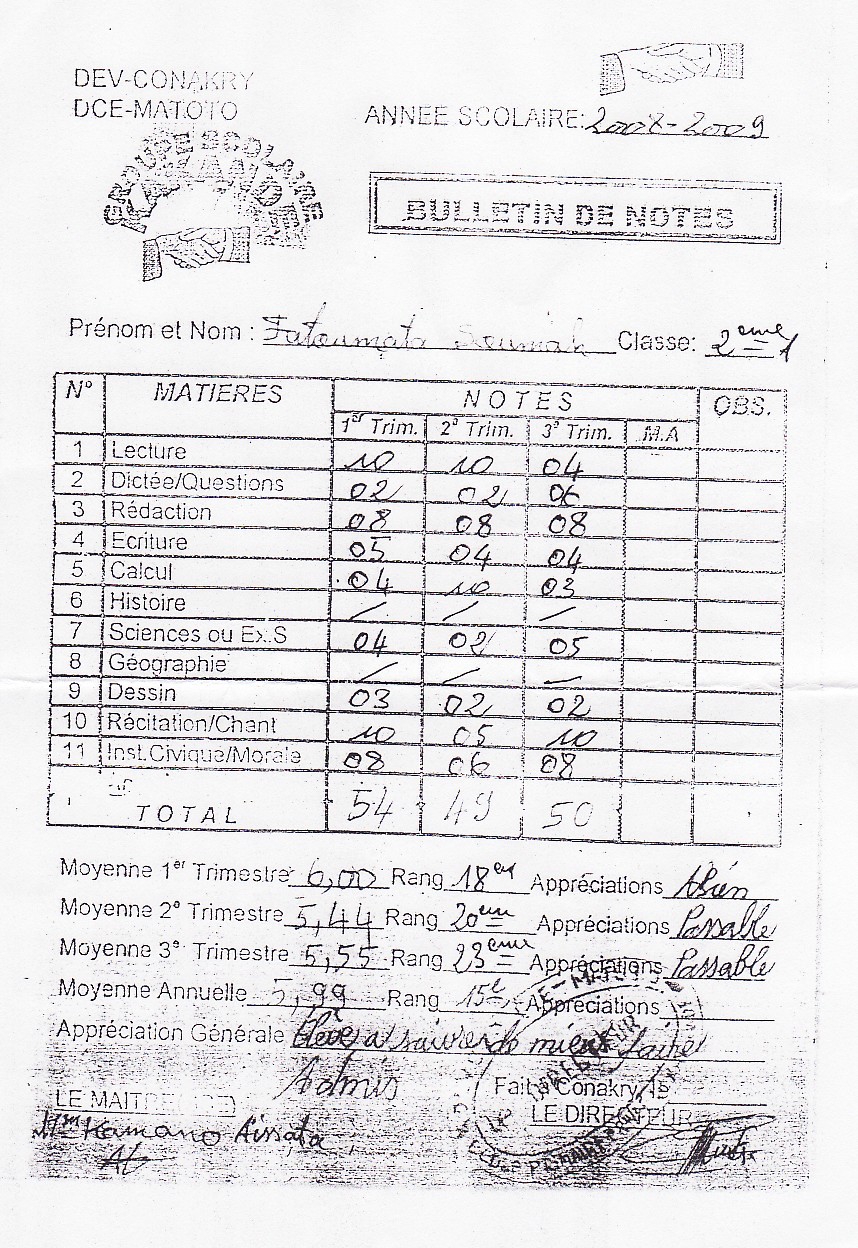 DEV-CONAKRY
DCE-MATOTO
ANNEE SCOLAIRE: 2008-2009
GROUPE SCOLAIRE
BULLETIN DE NOTES
Prénom et Nom : Fatoumata Soumah Classe: 2ème 1
N° MATIERES NOTES OBS.
1er Trim. 2è Trim. 3è Trim. M.A
1 Lecture 10 10 04
2 Dictée/Questions 02 02 06
3 Rédaction 08 08 08
4 Ecriture 05 04 04
5 Calcul 04 10 03
6 Histoire / / /
7 Sciences ou Ex.S 04 02 05
8 Géographie / / /
9 Dessin 03 02 02
10 Récitation/Chant 10 05 10
11 Inst.Civique/Morale 08 06 08
TOTAL 54 49 50
Moyenne 1er Trimestre 6,00 Rang 18è Appréciations
Moyenne 2è Trimestre 5,44 Rang 20ème Appréciations Passable
Moyenne 3è Trimestre 5,55 Rang 23ème Appréciations Passable
Moyenne Annuelle 5,99 Rang 15è Appréciations
Appréciation Générale Elève à suivre de mieux faire
Admis
Fait à Conakry, le
LE MAITRE
LE DIRECTEUR
Mme Kamano Aissata